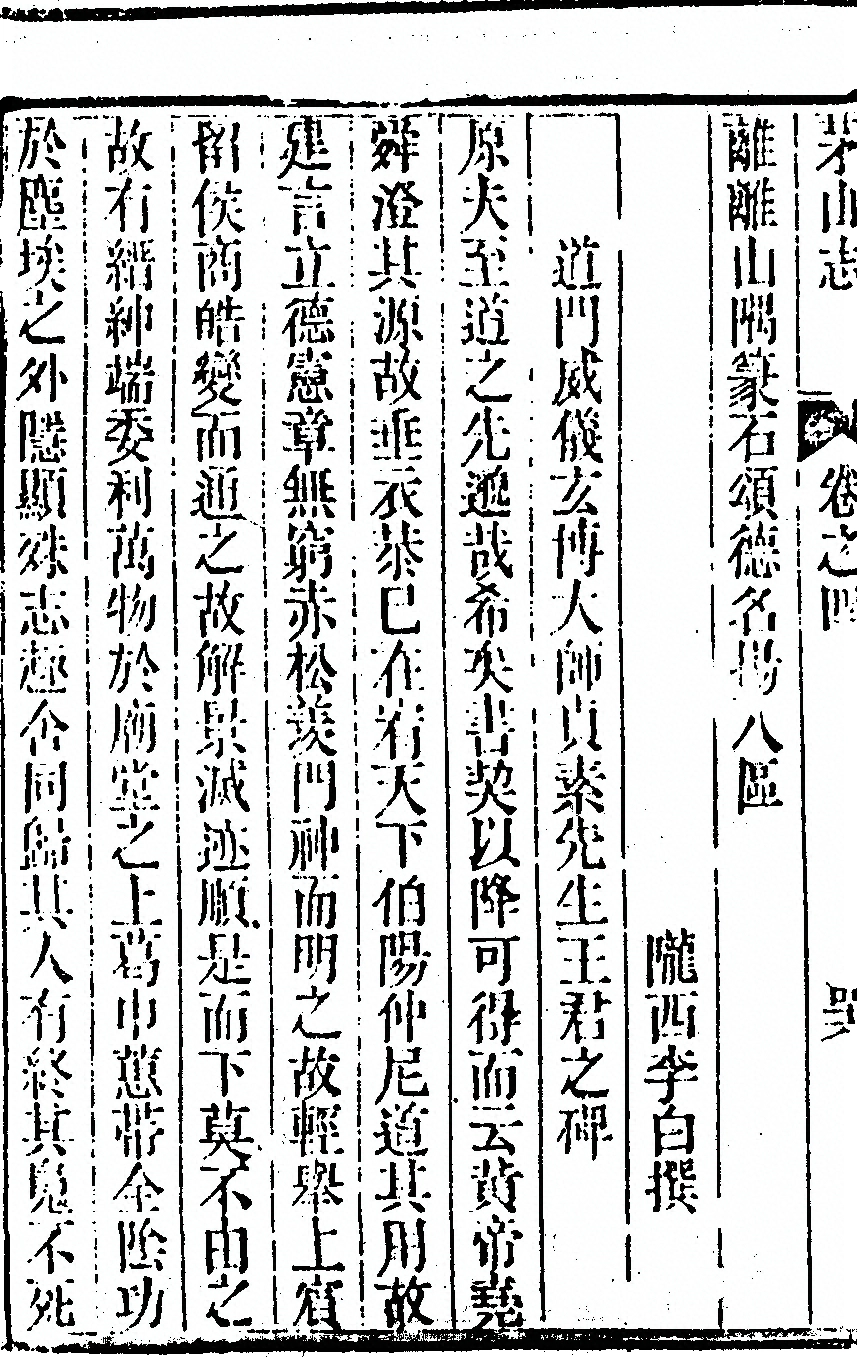 茅山志 卷之四
離離山隅篆石頌德名揚八區
隴西李白撰
道門威儀玄博大師貞素先生王君之碑
原夫至道之先邈哉希矣書契以降可得而云黃帝堯
舜澄其源故垂衣恭巳在宥天下伯陽仲尼道其用故
建言立德憲章無窮赤松羨門神而明之故輕舉上賓
留侯商皓變而通之故解景滅迹順是而下莫不由之
故有縉紳端委利萬物於廟堂之上葛巾蕙帶全陰功
於塵埃之外隱顯殊志趣舍同歸其人有終其鬼不死